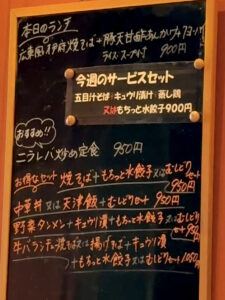 本日のランチ
広東風伊府焼そば＋豚天甘酢あんかけ＋
ライス・スープ付 900円
今週のサービスセット
五目汁そば:キュウリ漬け:蒸し鶏
又はもちっと水餃子900円
おすすめ!!
ニラレバ炒め定食 950円
お得なセット 焼そば＋もちっと水餃子又はむしどりセット
950円
中華丼又は天津飯＋もちっと水餃子又はむしどり
950円
野菜タンメン＋キュウリ漬＋もちっと水餃子又はむしどりセット
950円
牛バラチャー 又は揚げそば＋キュウリ漬
＋もちっと水餃子又はむしどりセット1050円